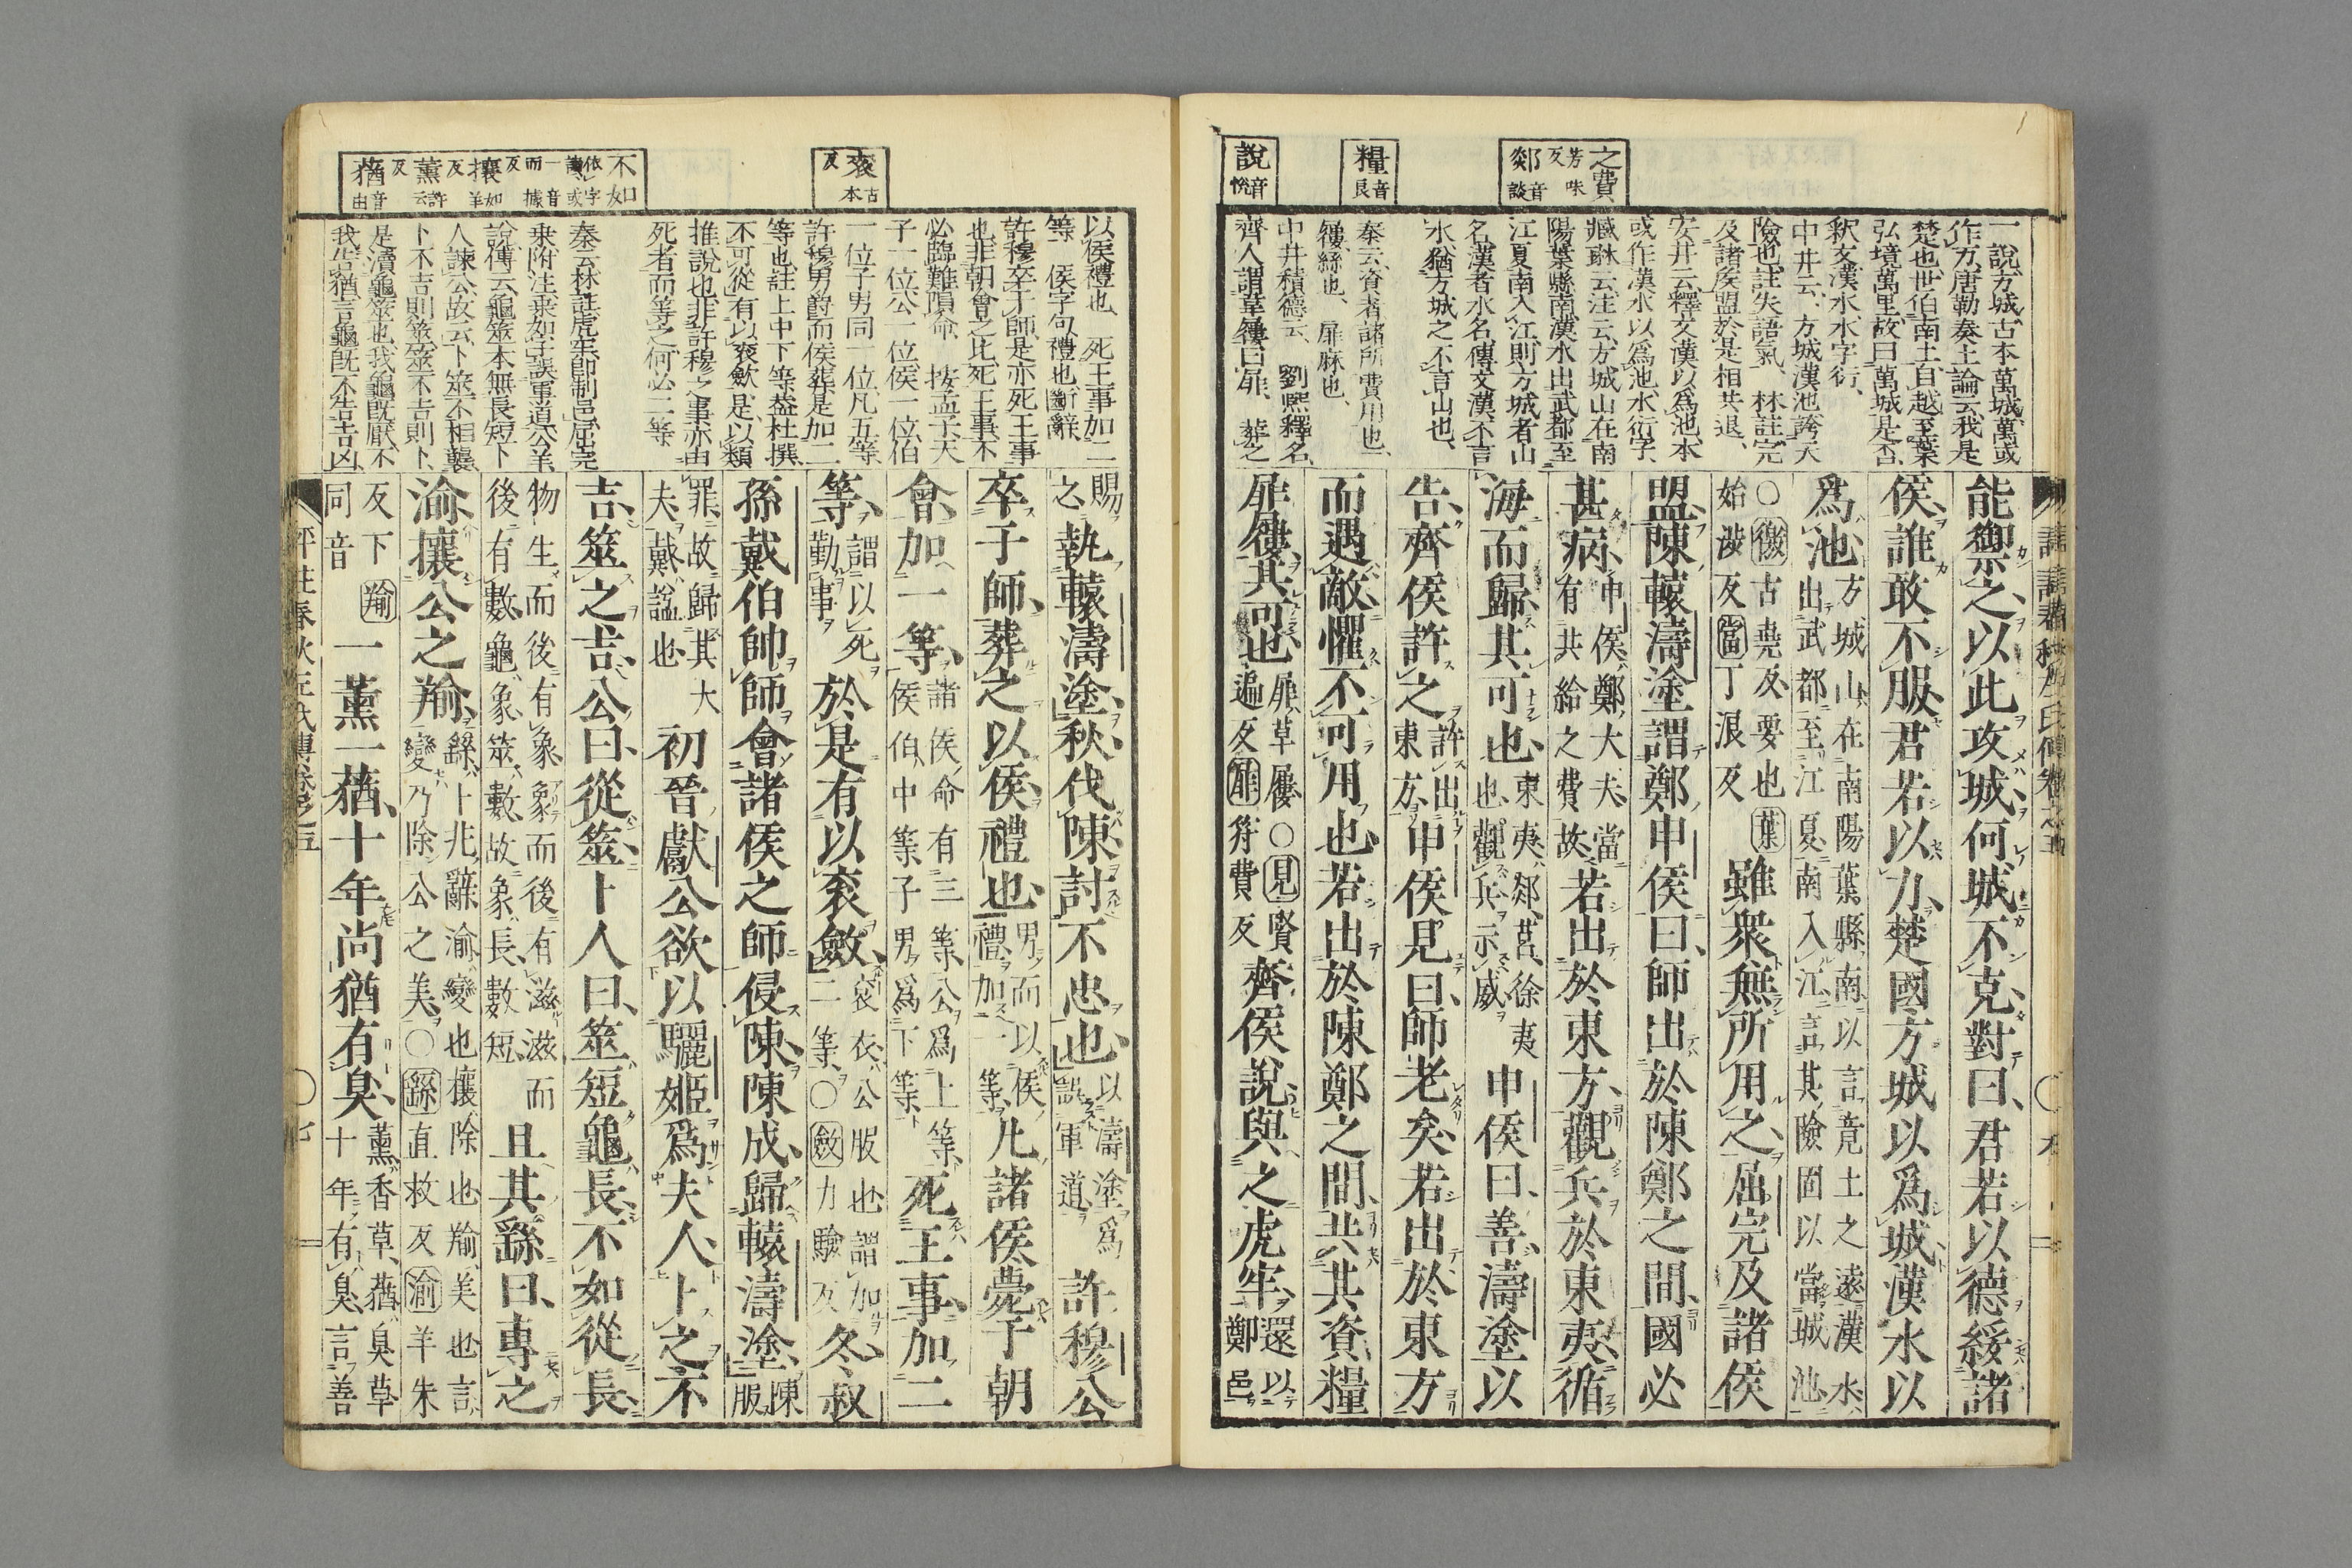 之費 芳味反 郯 音談
糧 音良
說 音悅
一說方城古本萬城萬或
作万唐勒奏土論云我是
楚也世伯南土自越至葉
弘境萬里故曰萬城是否
釈文漢水水字衍
中井云方城漢池誇大
險也註失語氣 林註完
及諸侯盟於是相共退
安井云釋文漢以爲池本
或作漢水以爲池水衍字
臧琳云注云方城山在南
陽葉縣南漢水出武都至
江夏南入江則方城者山
名漢者水名傳文漢不言
水猶方城之不言山也
秦云資者諸所費用也
屨絲也 屝麻也
中井積德云 劉熙釋名
齊人謂草屨曰屝
能禦之以此攻城何城不克對曰君若以德綏諸
侯誰敢不服君若以力楚國方城以爲城漢水以
爲池 方城山在南陽葉縣南以言竟土之遠漢水出武都至江夏南入江言其險固以當城池
○徼古堯反要也葉始涉反當丁浪反 雖衆無所用之屈完及諸侯
盟陳轅濤塗謂鄭申侯曰師出於陳鄭之間國必
甚病 申侯鄭大夫當有共給之費故 若出於東方觀兵於東夷循
海而歸其可也 東夷郯莒徐夷也觀兵示威 申侯曰善濤塗以
告齊侯許之 許出東方 申侯見曰師老矣若出於東方
而遇敵懼不可用也若出於陳鄭之間共其資糧
屝屨其可也 屝草屨○見賢遍反屝符費反 齊侯說與之虎牢 還以鄭邑
袞 古本反
攘 如羊反 薰 許云反 蕕 音由
以侯禮也 死王事加二
等 侯字句禮也斷辭
許穆卒于師是亦死王事
也非朝會之比死王事不
必臨難隕命 按孟子天
子一位公一位侯一位伯
一位子男同一位凡五等
許穆男爵而侯葬是加二
等也註上中下等蓋杜撰
不可從 有以袞斂是以類
推說也非許穆之事亦由
死者而等之何必二等
秦云林註虎牢即制邑屈完
乘附注乘如字誤軍道公羊
說傳云龜筮本無長短卜
人諫公故云卜筮不相襲
卜不吉則筮筮不吉則卜
是瀆龜筮也我龜既厭不
我告猶言龜既不告吉凶
賜之 執轅濤塗秋伐陳討不忠也 以濤塗爲誤軍道 許穆公
卒于師葬之以侯禮也 男而以侯禮加一等 凡諸侯薨于朝
會加一等 諸侯命有三等公爲上等侯伯中等子男爲下等 死王事加二
等 謂以死勤事 於是有以袞斂 袞衣公服也謂加二等○斂力驗反 冬叔
孫戴伯帥師會諸侯之師侵陳陳成歸轅濤塗 陳服
罪故歸其大夫戴謚也 初晉獻公欲以驪姬爲夫人卜之不
吉筮之吉公曰從筮卜人曰筮短龜長不如從長
物生而後有象象而後有滋滋而後有數龜象筮數故象長數短 且其繇曰專之
渝攘公之羭 繇卜兆辭渝變也攘除也羭美也言變乃除公之美○繇直救反渝羊朱
反下同羭音 一薰一蕕十年尚猶有臭 薰香草蕕臭草十年有臭言善
評註春秋左氏傳卷之五